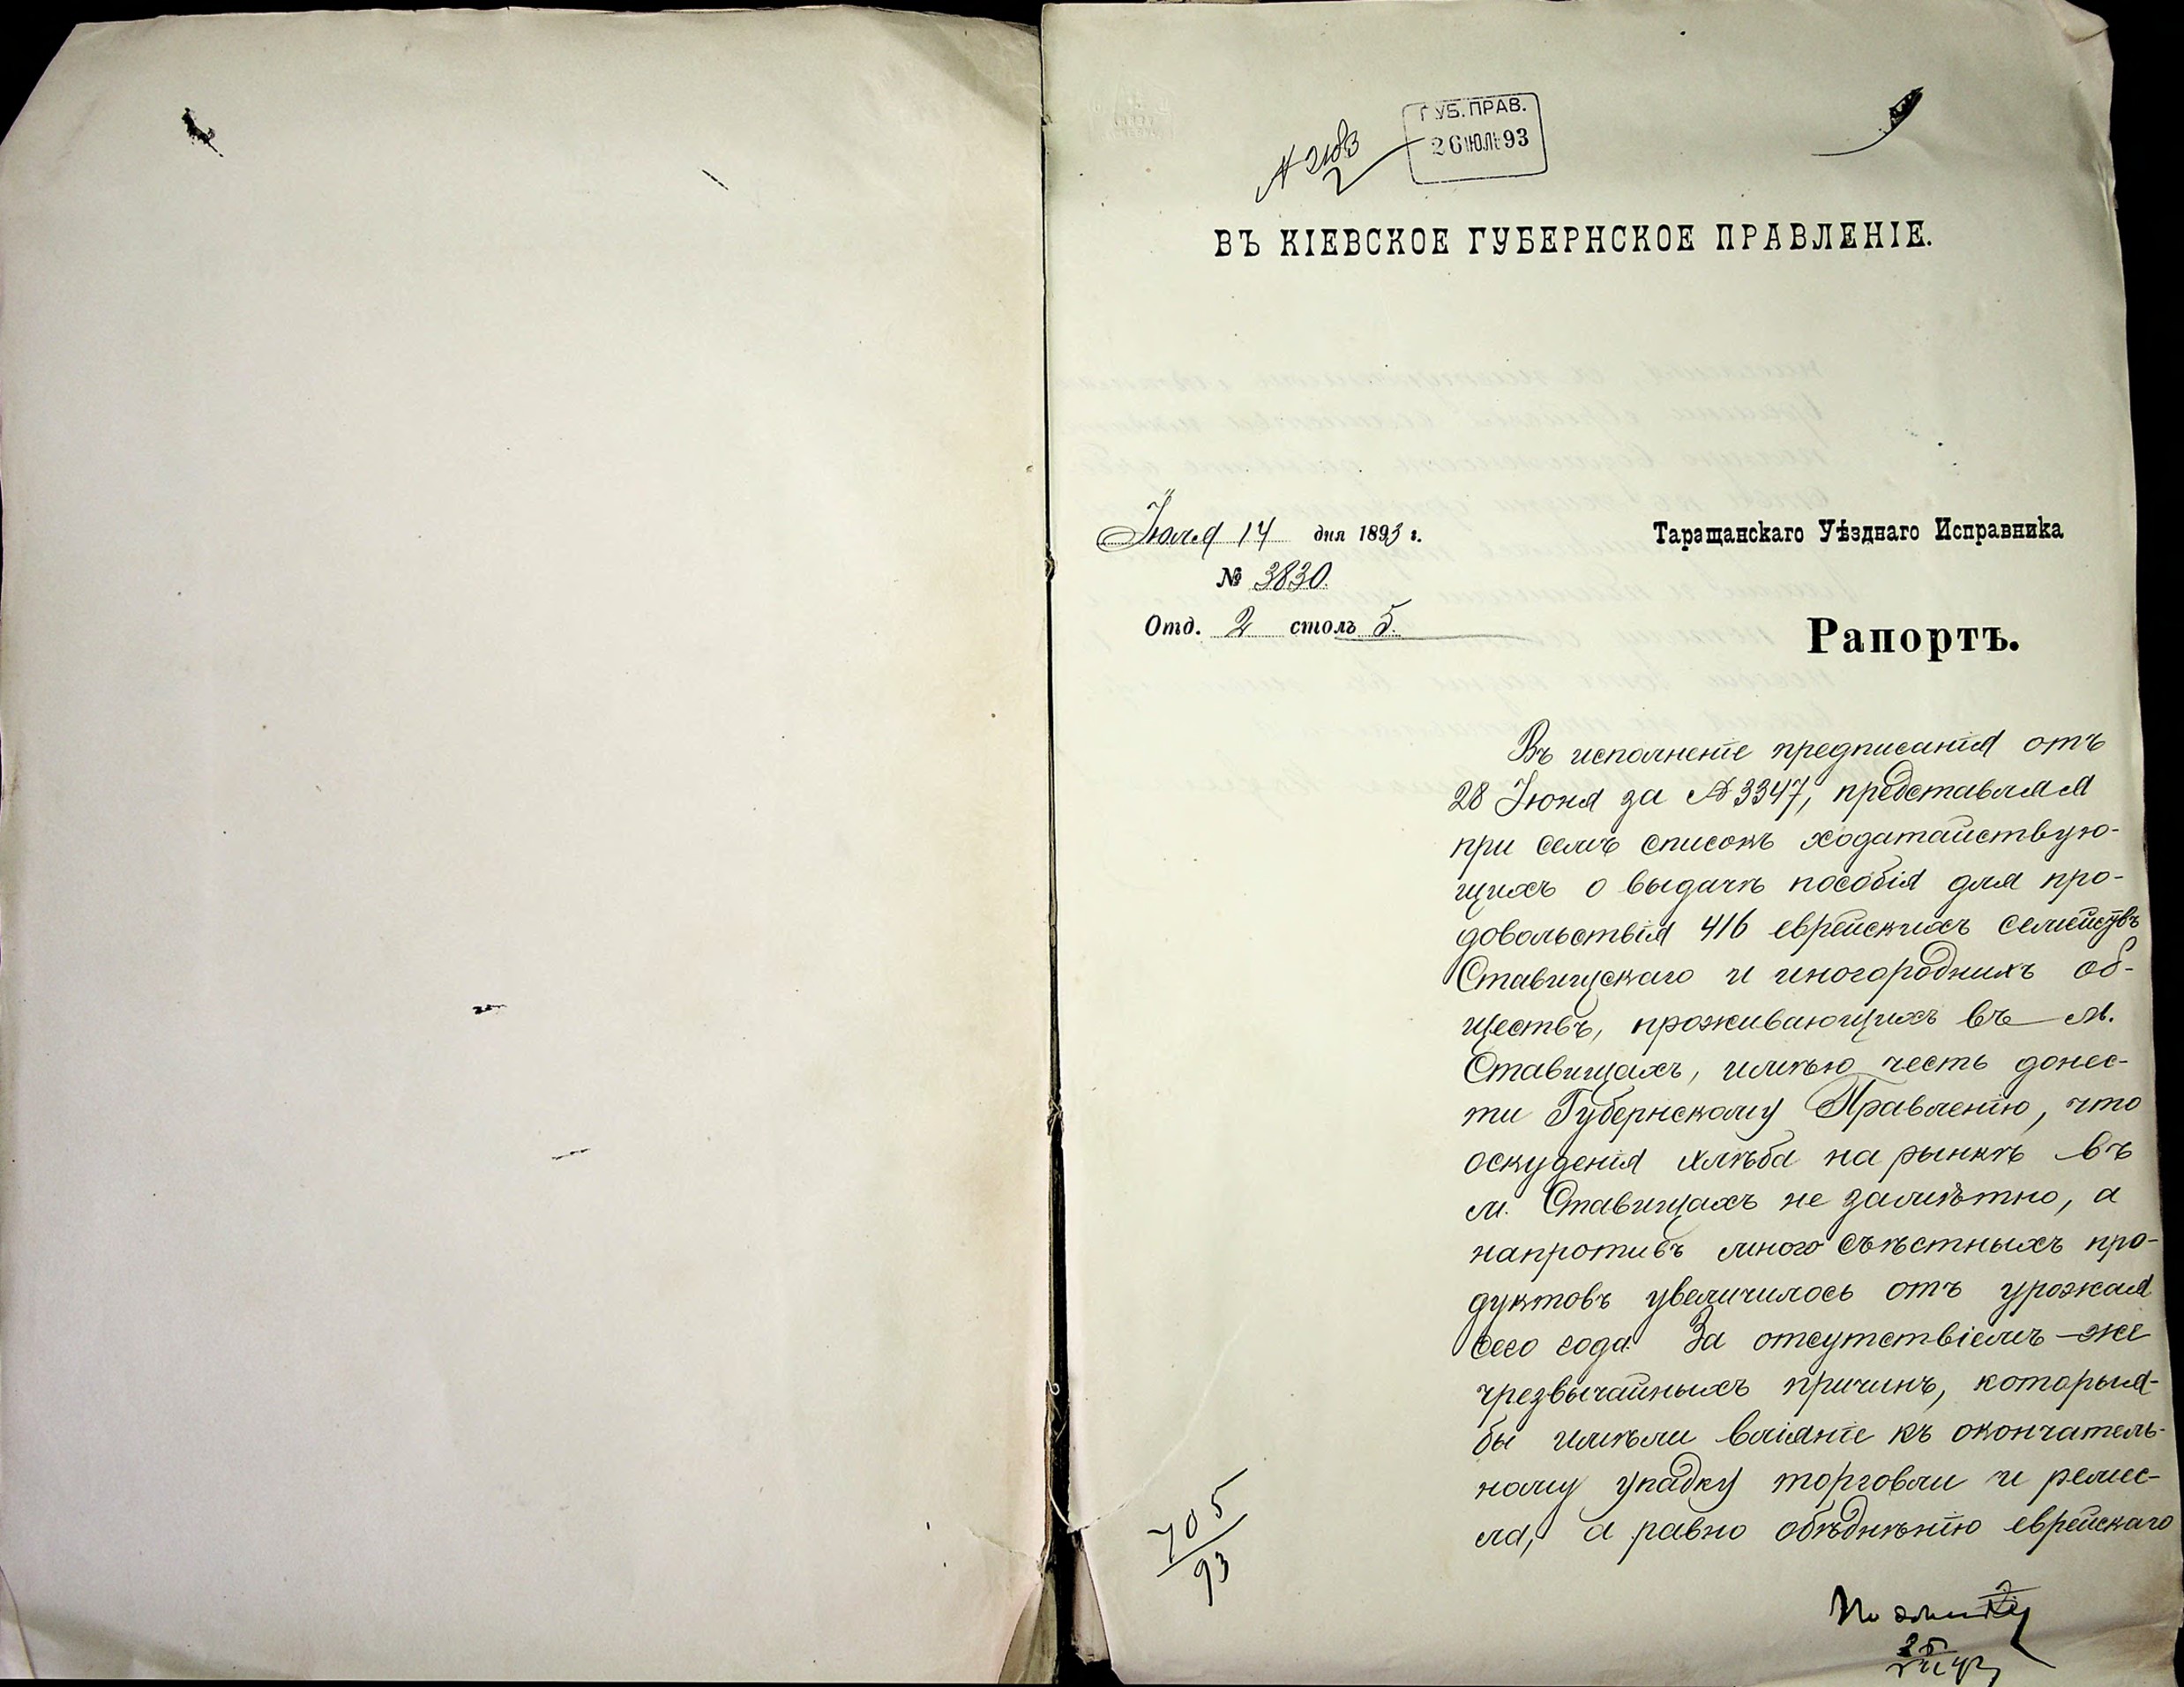 ГУБ. ПРАВ.
26 ЮЛ 93
№ 2183
2
ВЪ КІЕВСКОЕ ГУБЕРНСКОЕ ПРАВЛЕНІЕ.
Іюля 14 дня 1893 г.
№ 3830.
Отд. 2 столъ 5.
Таращанскаго Уѣзднаго Исправника
Рапортъ.
Въ исполненіе предписанія отъ
28 Іюня за № 3347, представляя
при семъ списокъ ходатайствую-
щихъ о выдачѣ пособія для про-
довольствія 416 еврейскихъ семействъ
Ставищскаго и иногороднихъ об-
ществъ, проживающихъ въ м.
Ставищахъ, имѣю честь донес-
ти Губернскому Правленію, что
оскуденія хлѣба на рынкѣ въ
м. Ставищахъ не замѣтно, а
напротивъ много съѣстныхъ про-
дуктовъ увеличилось отъ урожая
сего года. За отсутствіемъ-же
чрезвычайныхъ причинъ, которыя-
бы имѣли вліяніе къ окончатель-
ному упадку торговли и ремес-
ла, а равно обѣднѣнію еврейскаго
705
93